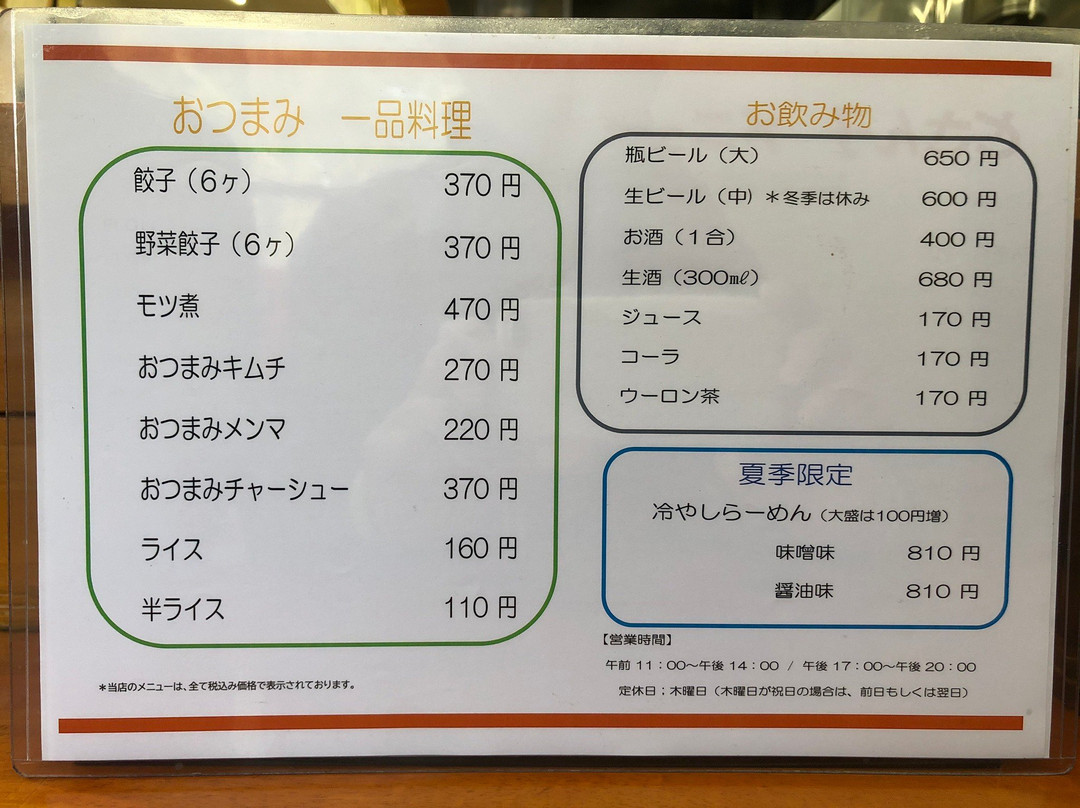 おつまみ 一品料理
餃子（6ヶ） 370 円
野菜餃子（6ヶ） 370 円
モツ煮 470 円
おつまみキムチ 270 円
おつまみメンマ 220 円
おつまみチャーシュー 370 円
ライス 160 円
半ライス 110 円
＊当店のメニューは、全て税込み価格で表示されております。
お飲み物
瓶ビール（大） 650 円
生ビール（中）＊冬季は休み 600 円
お酒（1合） 400 円
生酒（300㎖） 680 円
ジュース 170 円
コーラ 170 円
ウーロン茶 170 円
夏季限定
冷やしらーめん（大盛は100円増）
味噌味 810 円
醤油味 810 円
【営業時間】
午前 11：00～午後 14：00 / 午後 17：00～午後 20：00
定休日；木曜日（木曜日が祝日の場合は、前日もしくは翌日）